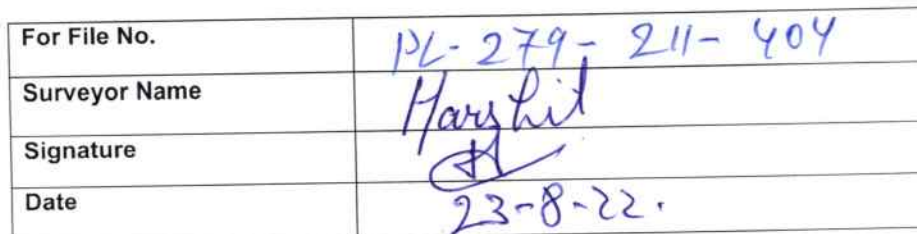 For File No. PL-279-211-404
Surveyor Name Harshit
Signature
Date 23-8-22.